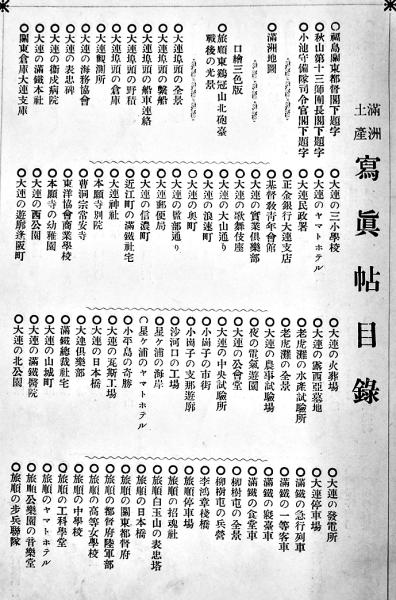 滿洲
土產
寫眞帖目錄
○福島關東都督閣下題字
○秋山第十三師團長閣下題字
○小池守備隊司令官閣下題字
○滿洲地圖
口繪三色版
○旅順東鷄冠山北砲臺
戰後の光景
○大連埠頭の全景
○大連埠頭の繫船
○大連埠頭の船車連絡
○大連埠頭の野積
○大連埠頭の倉庫
○大連觀測所
○大連の海務協會
○大連の表忠碑
○大連の衞戍病院
○大連の滿鐵本社
○關東倉庫大連支庫
○大連の三小學校
○大連のヤマトホテル
○大連民政署
○正金銀行大連支店
○基督敎靑年會館
○大連の實業俱樂部
○大連の歌舞伎座
○大連の大山通り
○大連の浪速町
○大連の奧町
○大連の監部通り
○大連郵便局
○大連の信濃町
○近江町の滿鐵社宅
○大連神社
○本願寺別院
○曹洞宗常安寺
○東洋協會商業學校
○本願寺の幼稚園
○大連の西公園
○大連の遊廓逢阪町
○大連の火葬場
○大連の露西亞墓地
○老虎灘の水產試驗所
○老虎灘の全景
○大連の農事試驗場
○夜の電氣遊園
○大連の公會堂
○大連の中央試驗所
○小崗子の市街
○小崗子の支那遊廓
○沙河口の工場
○星ヶ浦の海岸
○星ヶ浦のヤマトホテル
○小平島の奇勝
○大連の瓦斯工場
○大連の日本橋
○大連俱樂部
○滿鐵總裁社宅
○大連の山城町
○大連の滿鐵醫院
○大連の北公園
○大連の發電所
○大連停車場
○滿鐵の急行列車
○滿鐵の一等客車
○滿鐵の寢臺車
○滿鐵の食堂車
○柳樹屯の全景
○柳樹屯の兵營
○李鴻章棧橋
○旅順停車場
○旅順の招魂社
○旅順白玉山の表忠塔
○旅順の日本橋
○旅順の關東都督府
○旅順の都督府陸軍部
○旅順の高等女學校
○旅順の中學校
○旅順の工科學堂
○旅順のヤマトホテル
○旅順公樂園の音樂堂
○旅順の步兵聯隊